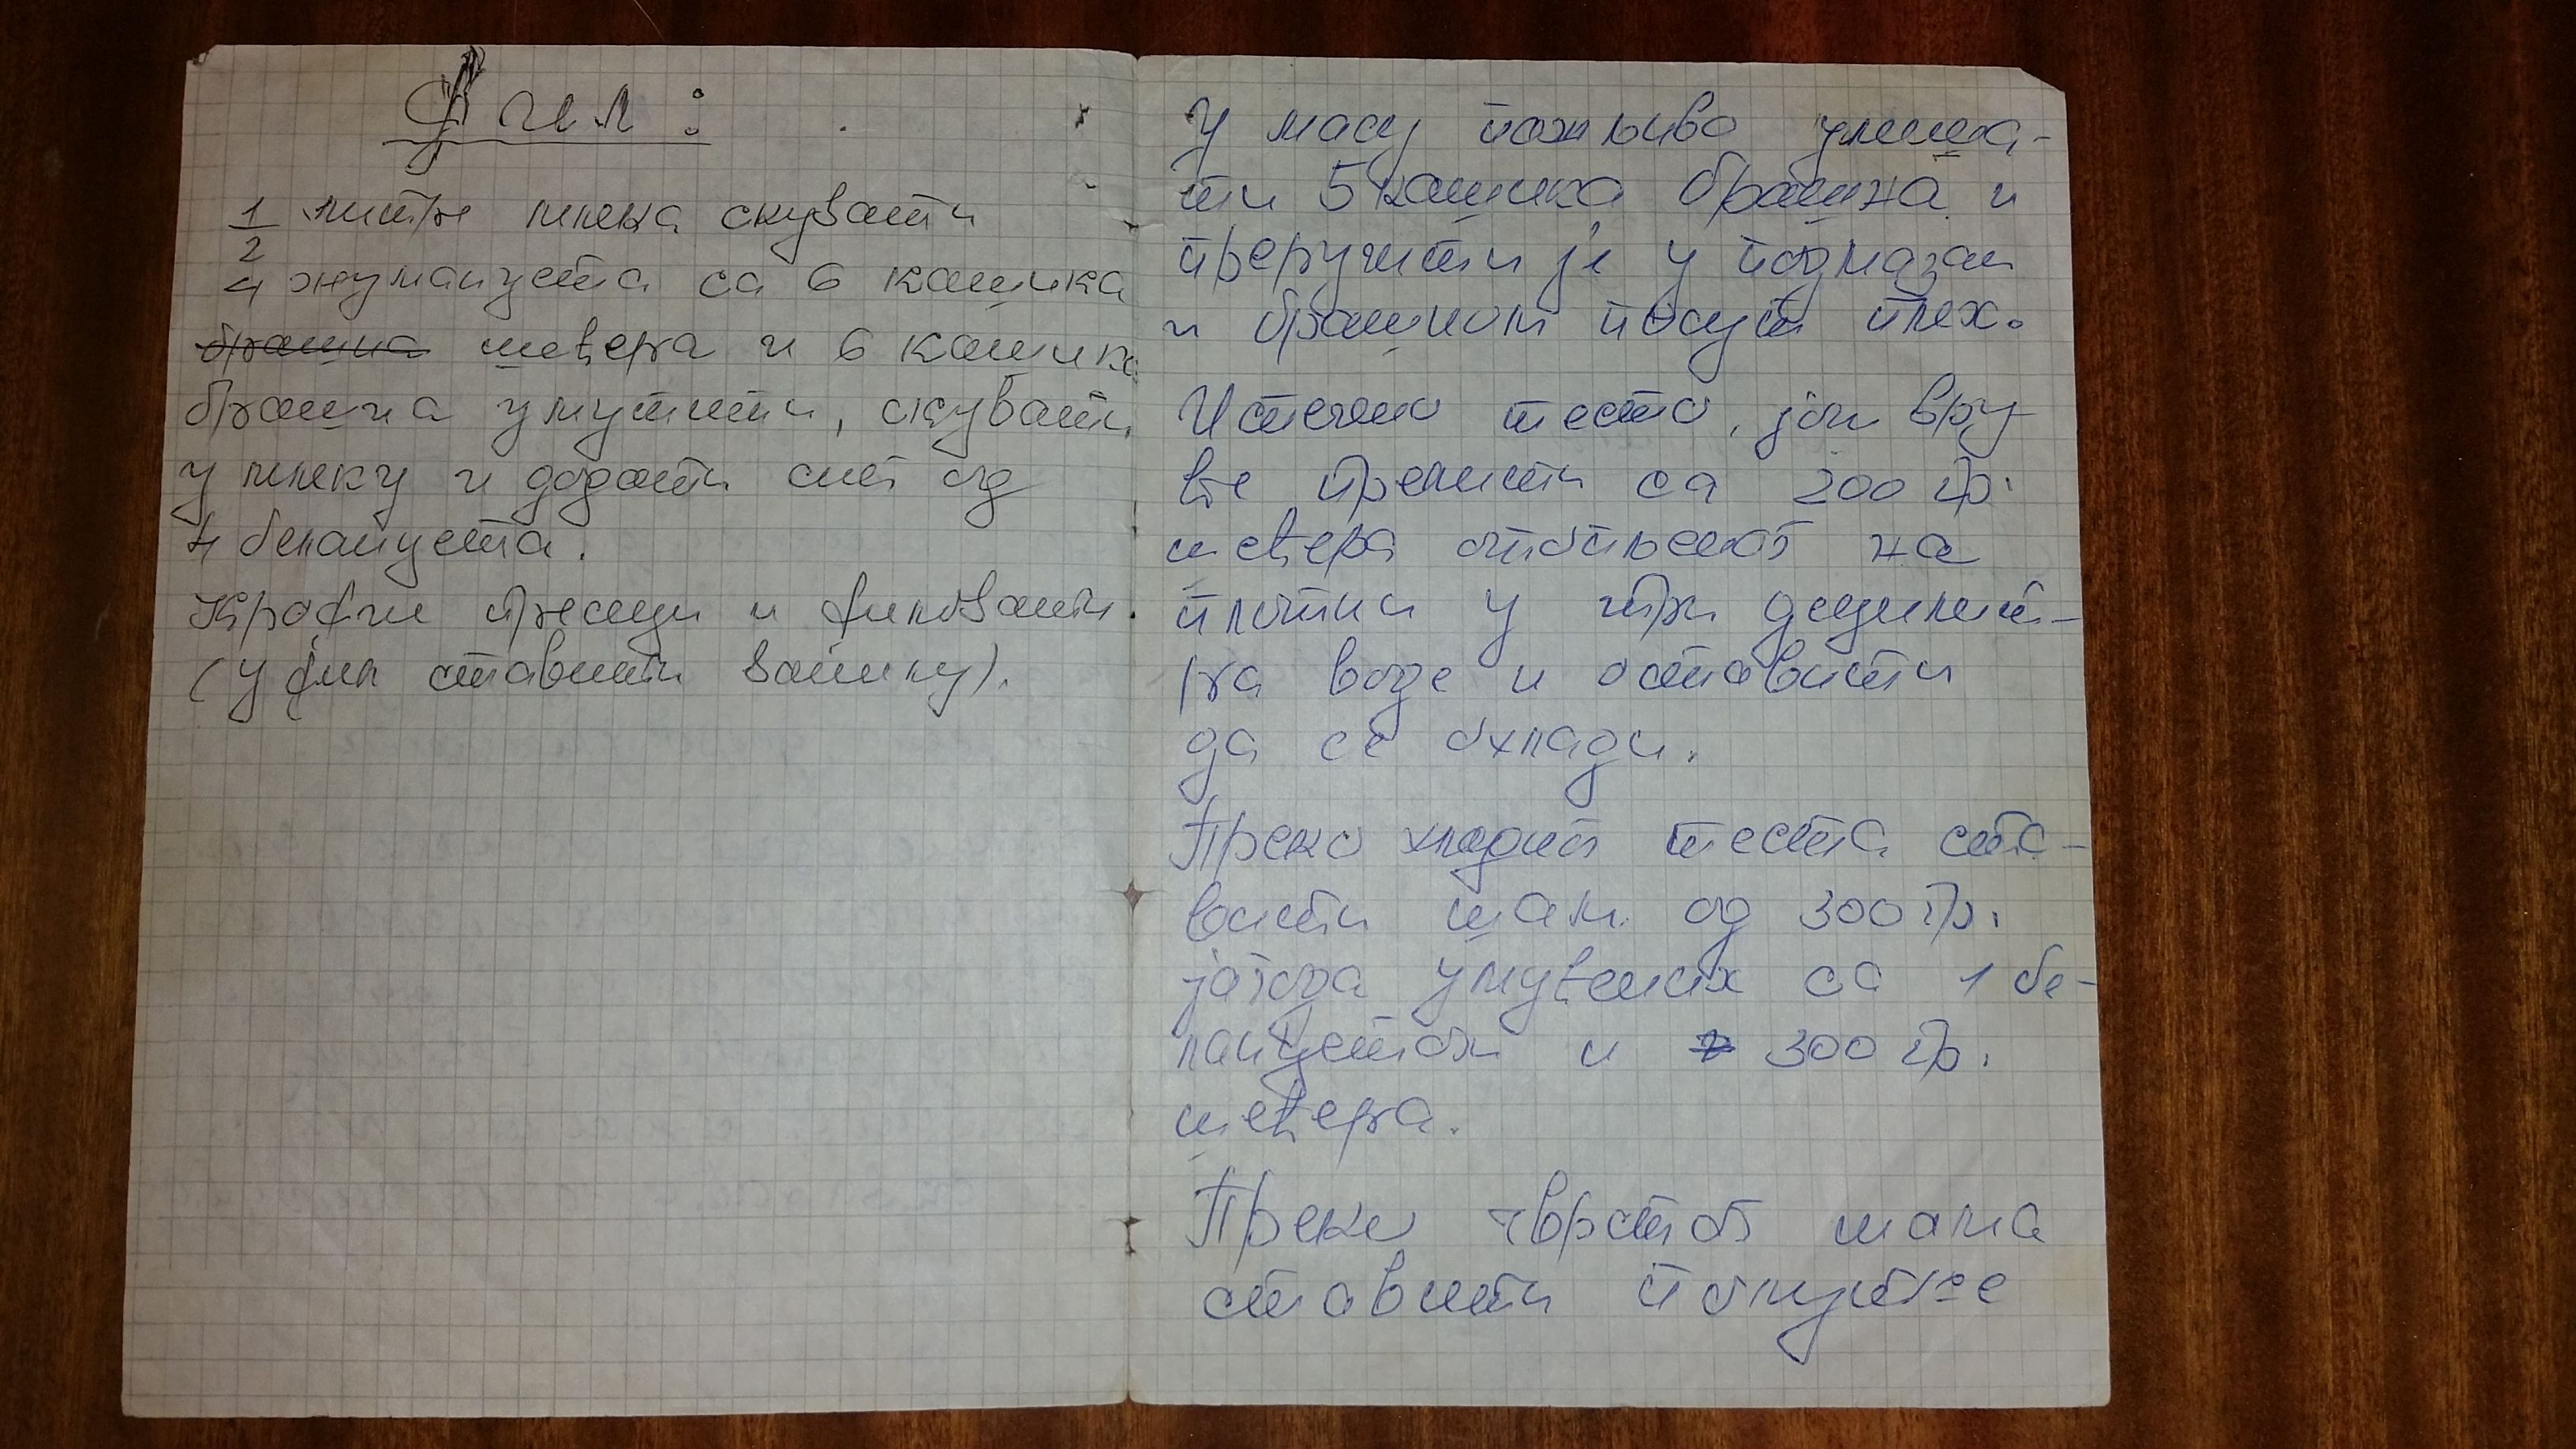 Фил:
1/2 литре млека скувати
4 жуманцета са 6 кашика
брашна шећера и 6 кашика
брашна умутити, скувати
у млеку и додати снег од
4 беланцета.
Крофне пресећи и филовати.
(у фил ставити ванилу).
У масу пажљиво умеша-
ти 5 кашика брашна и
преручити је у подмазан
и брашном посут плех.
Испечено тесто, још вру
ће прелити са 200 гр.
шећера отопљеног на
плотни у три децилит-
ра воде и оставити
да се охлади.
Преко хладног теста ста-
вити шам од 300 гр.
јагода умућених са 1 бе-
ланцетом и 300 гр.
шећера.
Преко чврстог шама
ставити